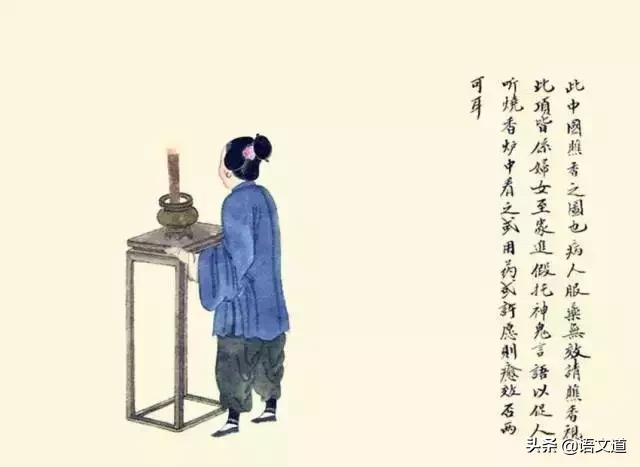 此中國瞧香之圖也病人服藥無效請瞧香視
此項皆係婦女至家進假托神鬼言語以促人
听燒香炉中看之或用药或許愿則癒效否兩
可耳
头条 @语文道